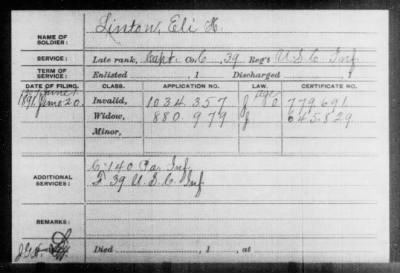 Linton, Eli H.
NAME OF SOLDIER:
SERVICE: Late rank, Capt. Co. C, 39 Reg't U.S.C. Inf
TERM OF SERVICE: Enlisted , 1 Discharged , 1
DATE OF FILING. CLASS. APPLICATION NO. LAW. CERTIFICATE NO.
1891 June 20. Invalid, 1034.357 J age 779691
Widow, 880.979 J 645829
Minor,
ADDITIONAL SERVICES:
C 140 Pa. Inf
F 39 U.S.C. Inf
REMARKS:
Died , 1 , at